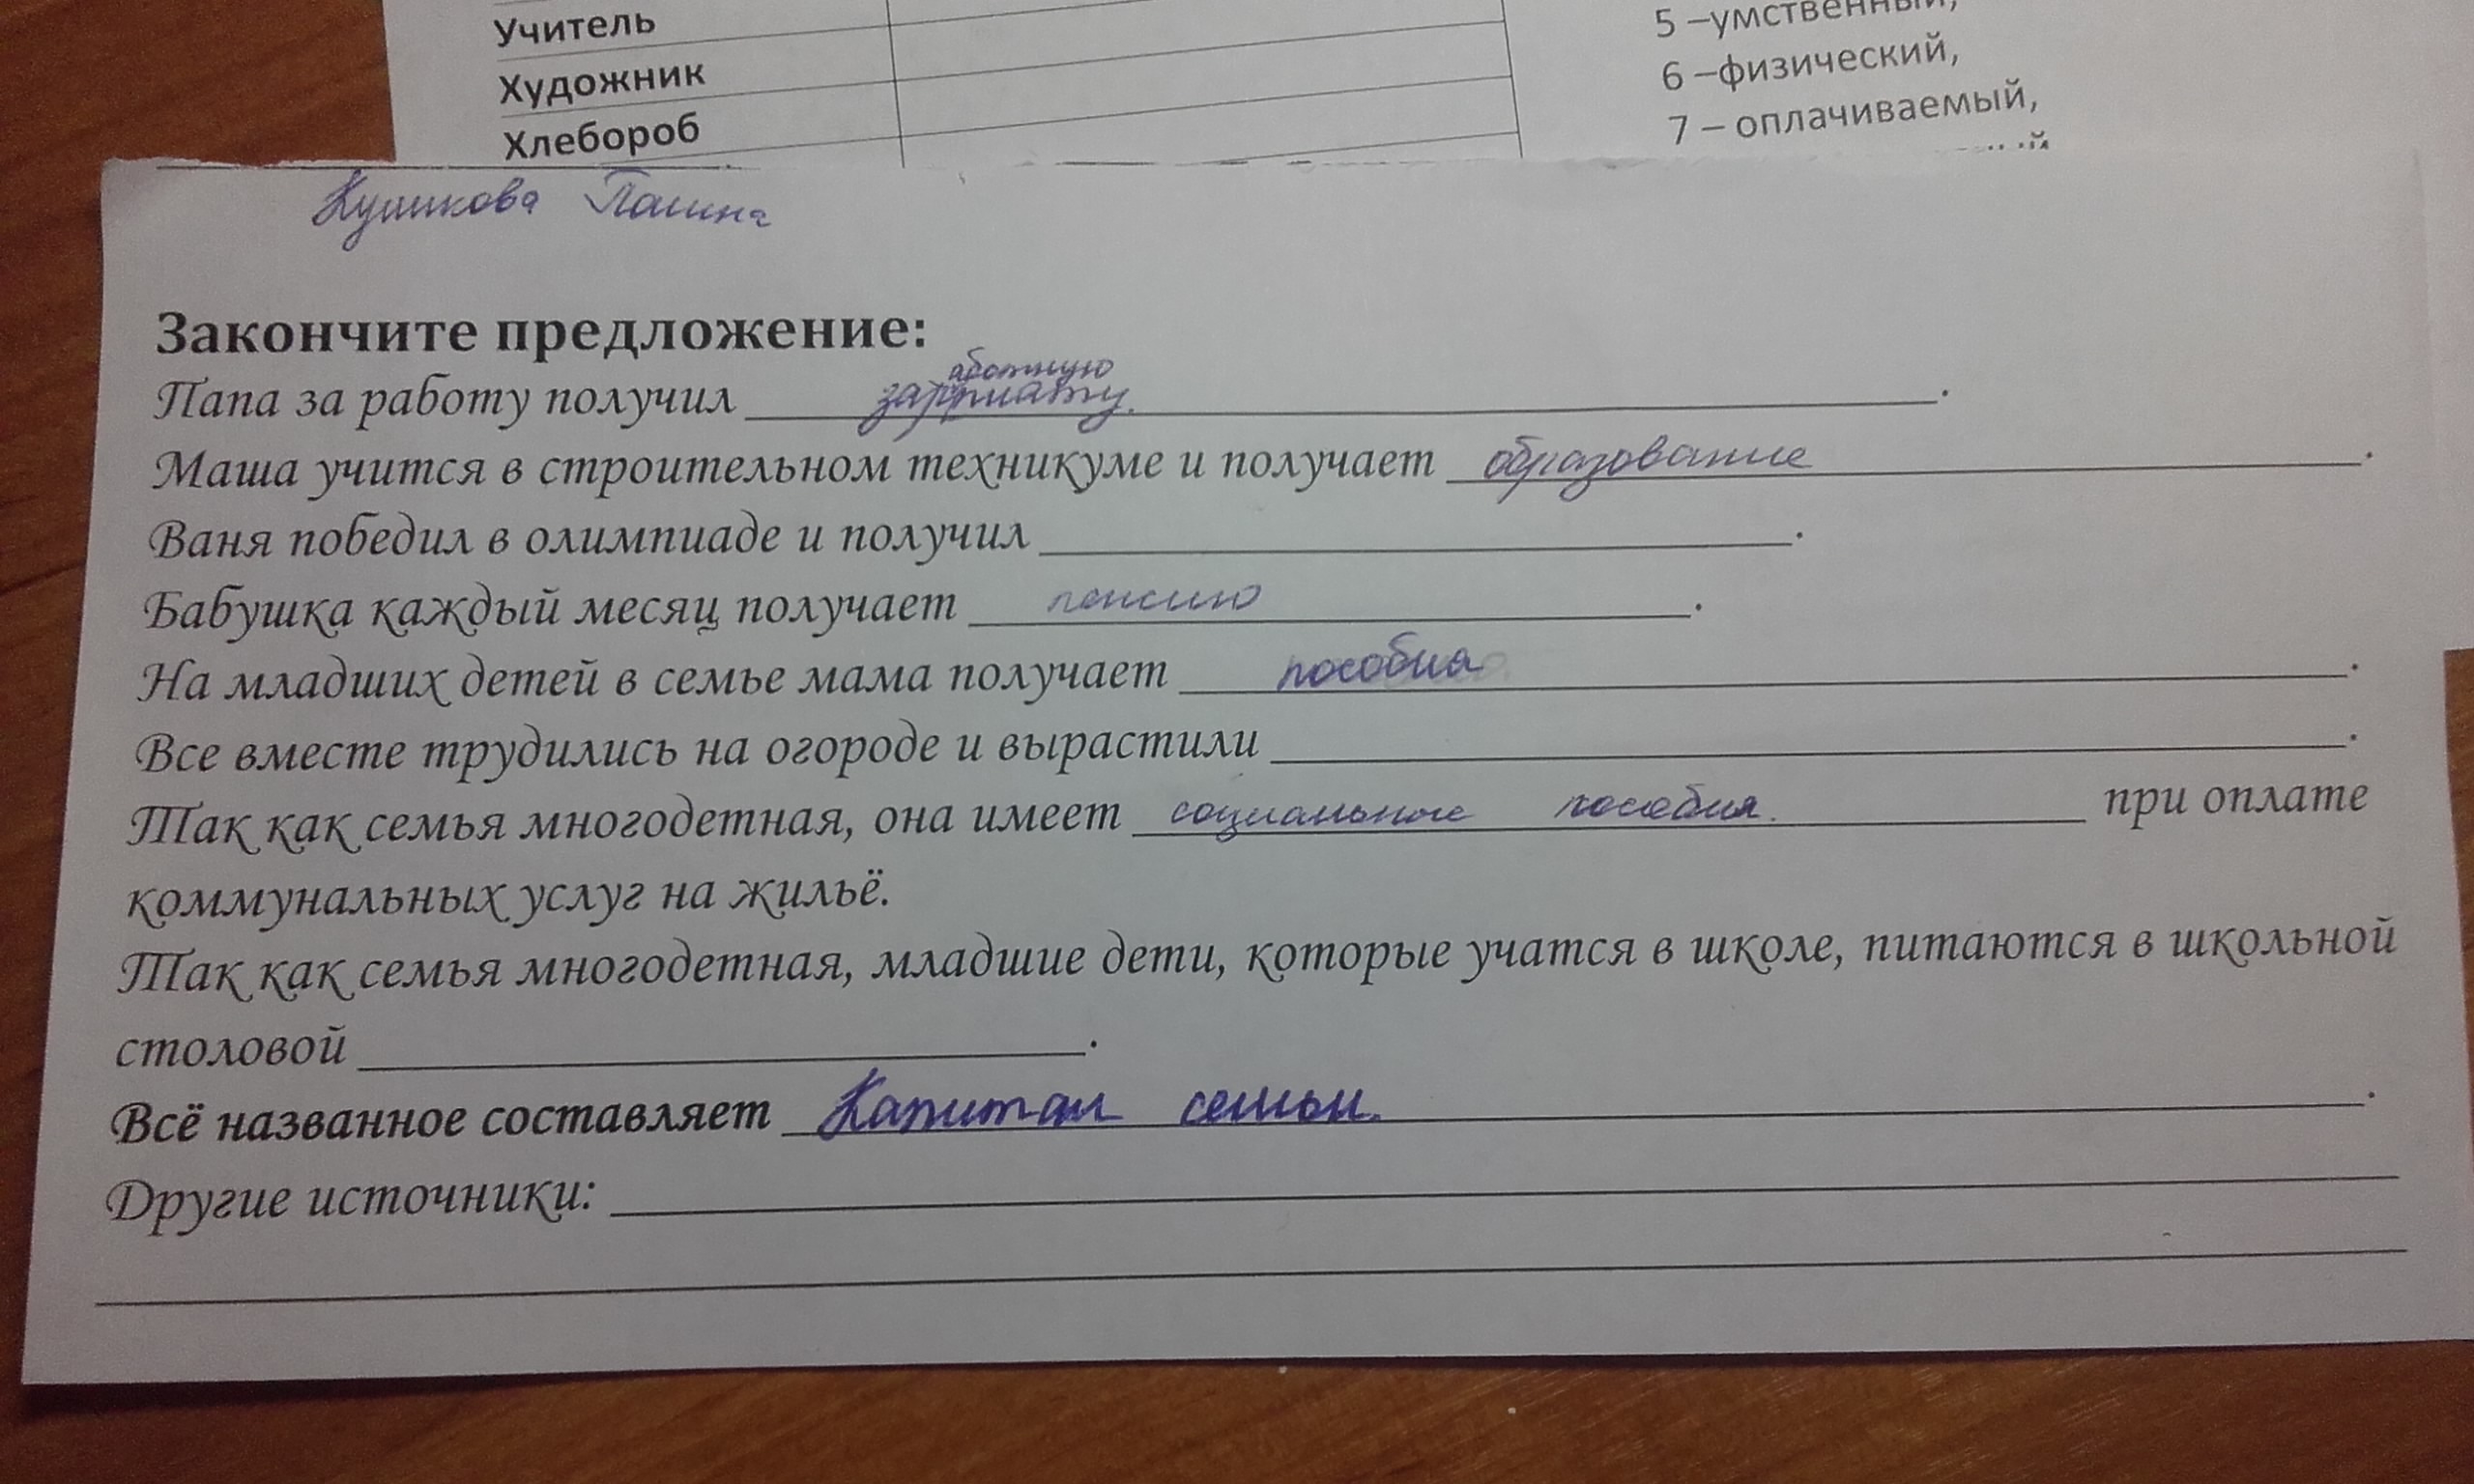 Учитель
5 –умственный,
Художник
6 –физический,
Хлебороб
7 – оплачиваемый,
Кушкова Полина
Закончите предложение:
аботную
Папа за работу получил зарплату.
Маша учится в строительном техникуме и получает образование.
Ваня победил в олимпиаде и получил.
Бабушка каждый месяц получает пенсию.
На младших детей в семье мама получает пособия.
Все вместе трудились на огороде и вырастили.
Так как семья многодетная, она имеет социальное пособия. при оплате
коммунальных услуг на жильё.
Так как семья многодетная, младшие дети, которые учатся в школе, питаются в школьной
столовой.
Всё названное составляет Капитал семьи.
Другие источники: